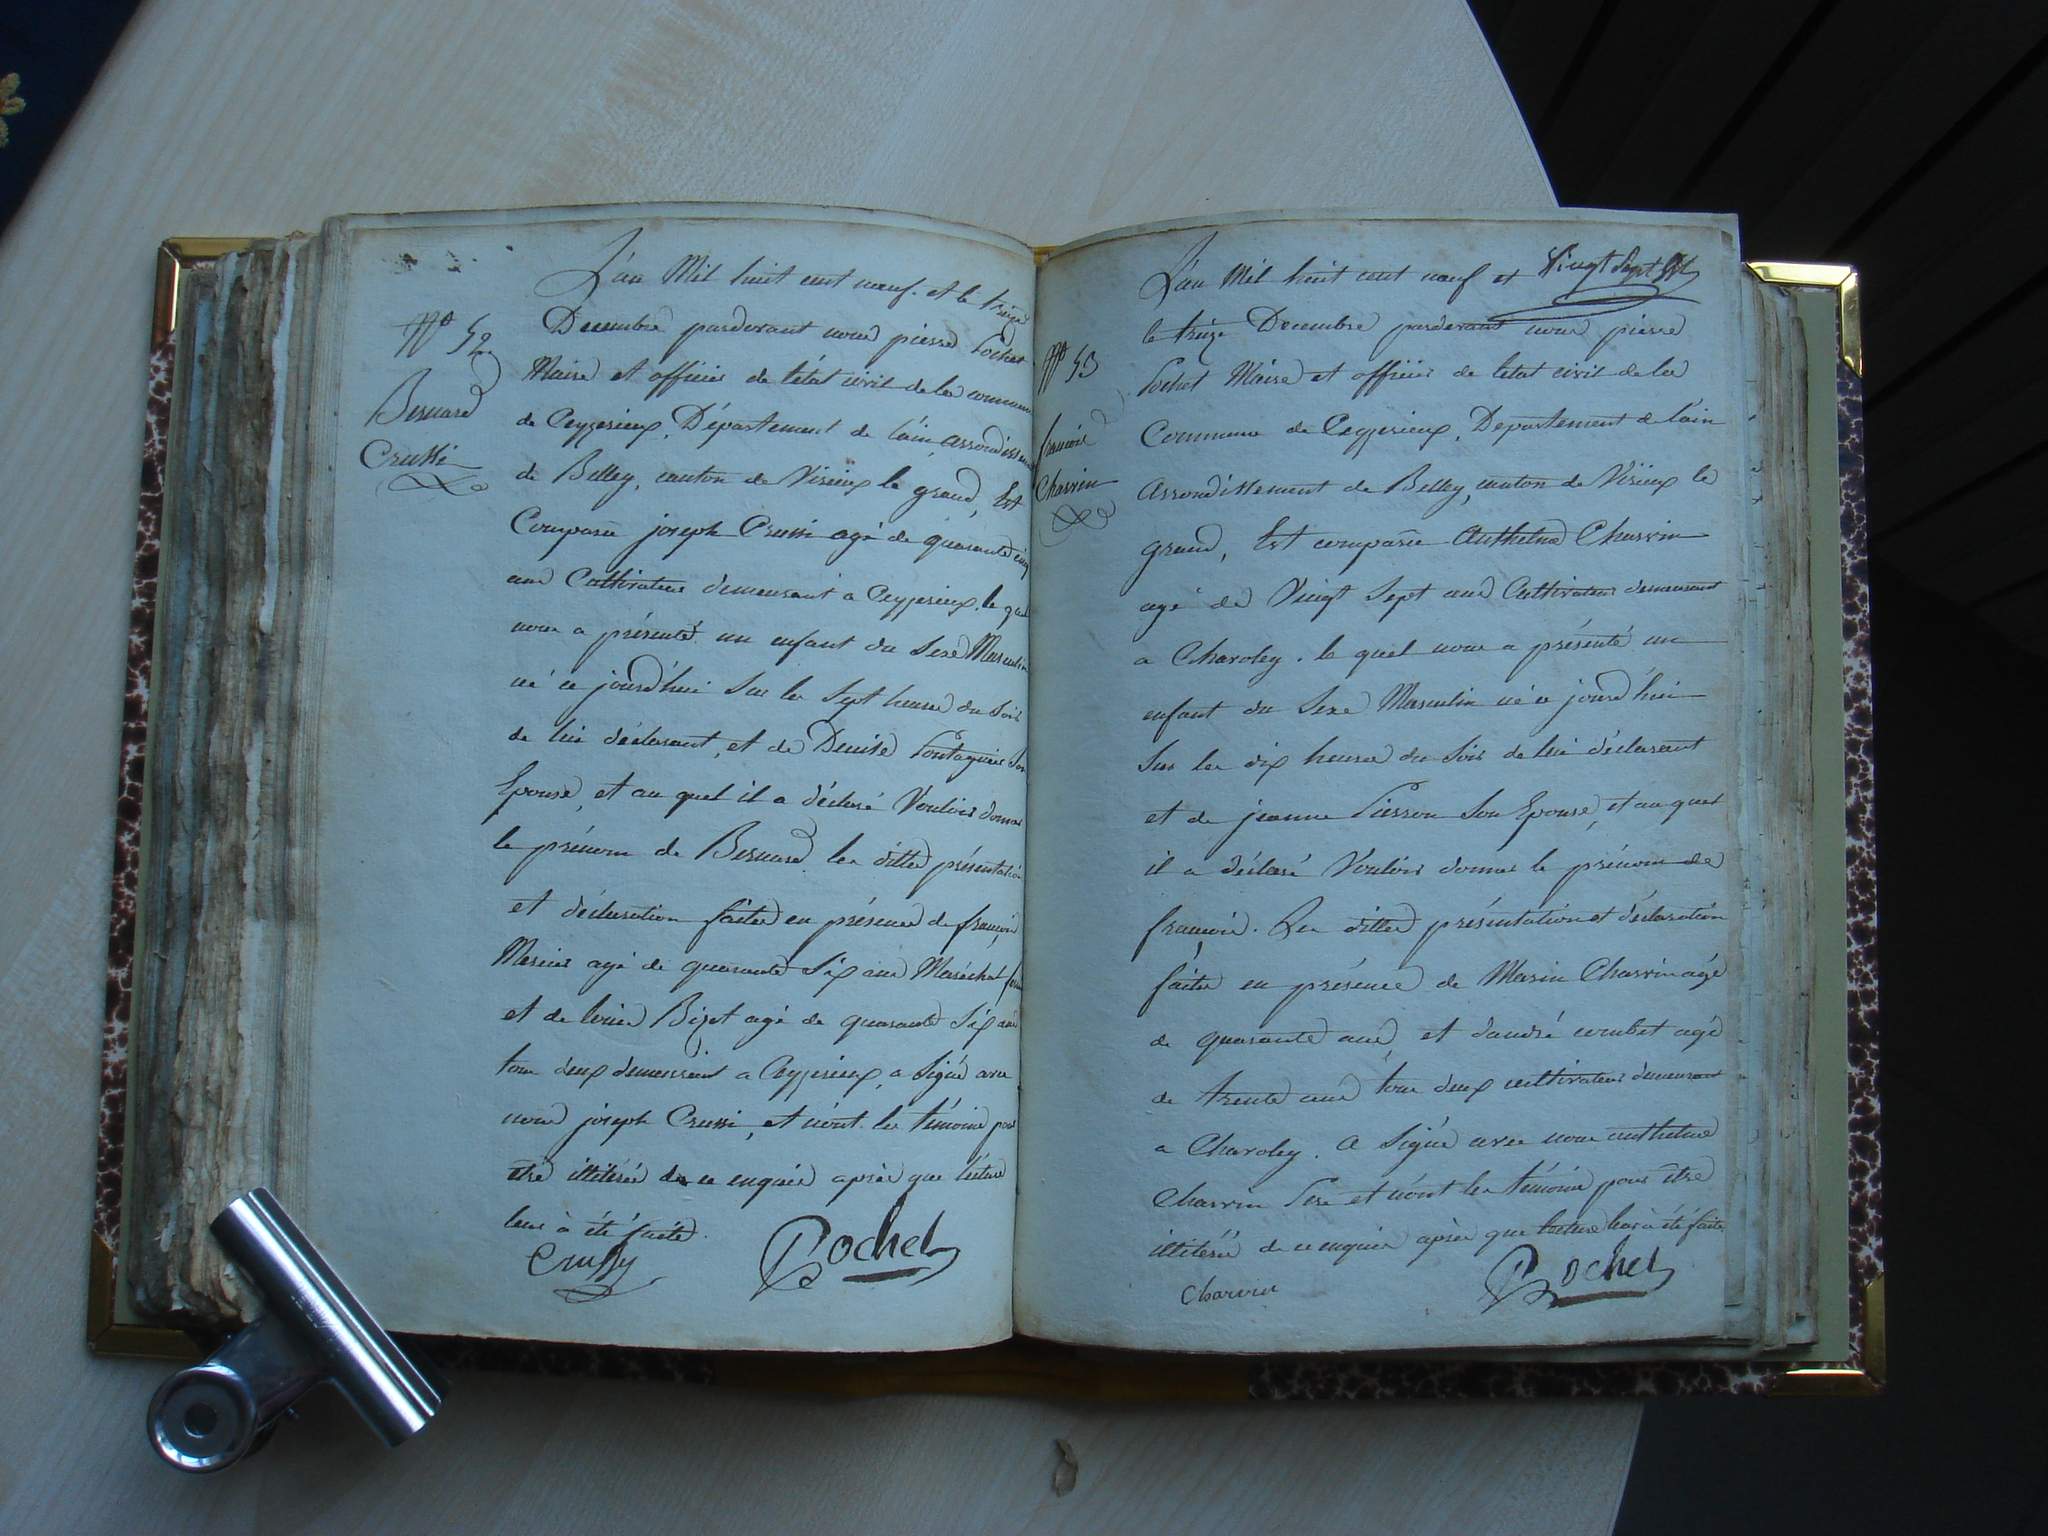 L'an Mil huit cent neuf. et le treize
N° 52
Decembre pardevant nous pierre Pochet
Maire et officier de l'état civil de la commune
Bernard
Crussi
de Ceyzerieux, Département de l'ain, arrondissement
de Belley, canton de Virieux le grand, Est
Comparu joseph Crussi agé de quarante cinq
ans Cultivateur demeurant a Ceyzerieux. le quel
nous a présenté un enfant du Sexe Masculin
né ce jourd'hui Sur les Sept heures du Soir
de lui déclarant, et de Denise Pontagnier Son
Epouse, et au quel il a déclaré Vouloir donner
le prénom de Bernard les dittes présentation
et déclaration faites en présence de françois
Marius agé de quarante Six ans Maréchal
et de louis Bizet agé de quarante Six ans
tous deux demeurant a Ceyzerieux, a Signé avec
nous joseph Crussi, et n'ont les témoins pour
être illitérés de ce enquis après que lecture
leur à été faite.
Crussy Pochet
L'an Mil huit cent neuf et Vingt Sept
le treize Decembre pardevant nous pierre
N° 53
Pochet Maire et officier de l'état civil de la
françois
Charvin
Commune de Ceyzerieux, Departement de l'ain
Arrondissement de Belley, canton de Virieux le
grand, Est comparu Anthelme Charvin
agé de Vingt Sept ans Cultivateur demeurant
a Chavoley. le quel nous a présenté un
enfant du Sexe Masculin né ce jourd'hui
Sur les dix heures du Soir de lui déclarant
et de jeanne Pierron Son Epouse, et au quel
il a déclaré Vouloir donner le prénom de
françois. Les dittes présentation et déclaration
faites en présence de Marin Charvin agé
de quarante ans, et d'andré combet agé
de trente ans tous deux cultivateurs demeurant
a Chavoley. A Signé avec nous anthelme
Charvin Pere et n'ont les témoins pour être
illitérés de ce enquis après que lecture leur à été faite
Charvin Pochet